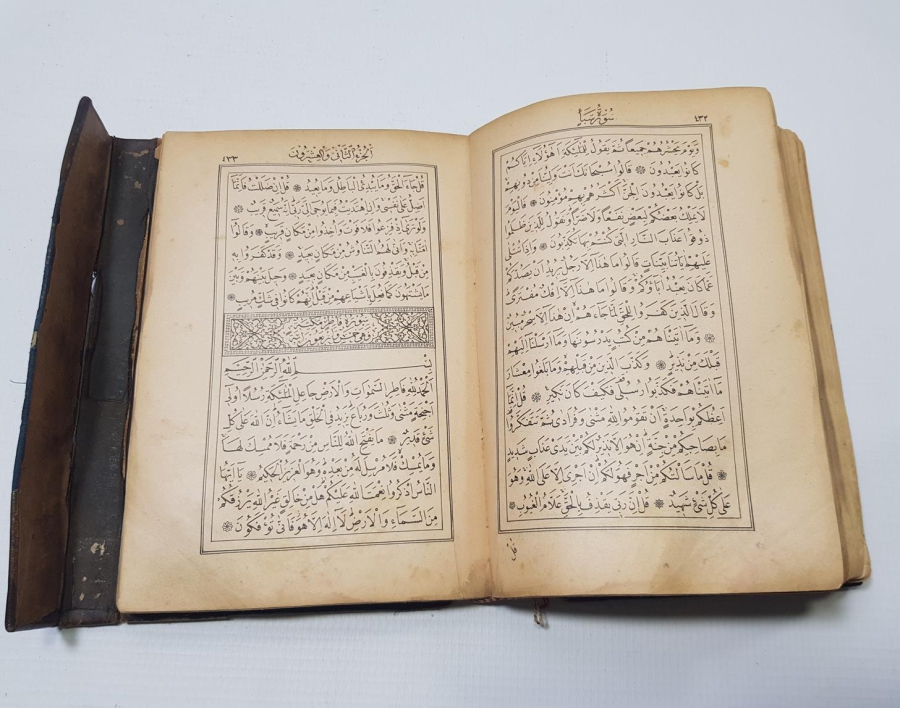 ٤٣٢ سُورَةُ سَبَأ
وَيَوْمَ يَحْشُرُهُمْ جَمِيعًا ثُمَّ يَقُولُ لِلْمَلٰئِكَةِ اَهٰؤُلَاءِ اِيَّاكُمْ
كَانُوا يَعْبُدُونَ ۞ قَالُوا سُبْحَانَكَ اَنْتَ وَلِيُّنَا مِنْ دُونِهِمْ
بَلْ كَانُوا يَعْبُدُونَ الْجِنَّ اَكْثَرُهُمْ بِهِمْ مُؤْمِنُونَ ۞ فَالْيَوْمَ
لَا يَمْلِكُ بَعْضُكُمْ لِبَعْضٍ نَفْعًا وَلَا ضَرًّا وَنَقُولُ لِلَّذِينَ ظَلَمُوا
ذُوقُوا عَذَابَ النَّارِ الَّتِى كُنْتُمْ بِهَا تُكَذِّبُونَ ۞ وَاِذَا تُتْلٰى
عَلَيْهِمْ اٰيَاتُنَا بَيِّنَاتٍ قَالُوا مَا هٰذَا اِلَّا رَجُلٌ يُرِيدُ اَنْ يَصُدَّكُمْ
عَمَّا كَانَ يَعْبُدُ اٰبَاؤُكُمْ وَقَالُوا مَا هٰذَا اِلَّا اِفْكٌ مُفْتَرًى
وَقَالَ الَّذِينَ كَفَرُوا لِلْحَقِّ لَمَّا جَاءَهُمْ اِنْ هٰذَا اِلَّا سِحْرٌ مُبِينٌ
۞ وَمَا اٰتَيْنَاهُمْ مِنْ كُتُبٍ يَدْرُسُونَهَا وَمَا اَرْسَلْنَا اِلَيْهِمْ
قَبْلَكَ مِنْ نَذِيرٍ ۞ وَكَذَّبَ الَّذِينَ مِنْ قَبْلِهِمْ وَمَا بَلَغُوا مِعْشَارَ
مَا اٰتَيْنَاهُمْ فَكَذَّبُوا رُسُلِى فَكَيْفَ كَانَ نَكِيرِ ۞ قُلْ اِنَّمَا
اَعِظُكُمْ بِوَاحِدَةٍ اَنْ تَقُومُوا لِلّٰهِ مَثْنٰى وَفُرَادٰى ثُمَّ تَتَفَكَّرُوا
مَا بِصَاحِبِكُمْ مِنْ جِنَّةٍ اِنْ هُوَ اِلَّا نَذِيرٌ لَكُمْ بَيْنَ يَدَىْ عَذَابٍ شَدِيدٍ
۞ قُلْ مَا سَاَلْتُكُمْ مِنْ اَجْرٍ فَهُوَ لَكُمْ اِنْ اَجْرِىَ اِلَّا عَلَى اللّٰهِ وَهُوَ
عَلٰى كُلِّ شَئٍ شَهِيدٌ ۞ قُلْ اِنَّ رَبِّى يَقْذِفُ بِالْحَقِّ عَلَّامُ الْغُيُوبِ ۞
قُلْ
اَلْجُزْءُ الثَّانِى وَالْعِشْرُونَ ٤٣٣
قُلْ جَاءَ الْحَقُّ وَمَا يُبْدِئُ الْبَاطِلُ وَمَا يُعِيدُ ۞ قُلْ اِنْ ضَلَلْتُ فَاِنَّمَا
اَضِلُّ عَلٰى نَفْسِى وَاِنِ اهْتَدَيْتُ فَبِمَا يُوحِى اِلَىَّ رَبِّى اِنَّهُ سَمِيعٌ قَرِيبٌ ۞
وَلَوْ تَرٰى اِذْ فَزِعُوا فَلَا فَوْتَ وَاُخِذُوا مِنْ مَكَانٍ قَرِيبٍ ۞ وَقَالُوا
اٰمَنَّا بِهِ وَاَنّٰى لَهُمُ التَّنَاوُشُ مِنْ مَكَانٍ بَعِيدٍ ۞ وَقَدْ كَفَرُوا بِهِ
مِنْ قَبْلُ وَيَقْذِفُونَ بِالْغَيْبِ مِنْ مَكَانٍ بَعِيدٍ ۞ وَحِيلَ بَيْنَهُمْ وَبَيْنَ
مَا يَشْتَهُونَ كَمَا فُعِلَ بِاَشْيَاعِهِمْ مِنْ قَبْلُ اِنَّهُمْ كَانُوا فِى شَكٍّ مُرِيبٍ ۞
سورة فاطر مكية
وهى خمس واربعون اية
بِسْمِ اللّٰهِ الرَّحْمٰنِ الرَّحِيمِ
اَلْحَمْدُ لِلّٰهِ فَاطِرِ السَّمٰوَاتِ وَالْاَرْضِ جَاعِلِ الْمَلٰئِكَةِ رُسُلًا اُولِى
اَجْنِحَةٍ مَثْنٰى وَثُلٰثَ وَرُبَاعَ يَزِيدُ فِى الْخَلْقِ مَا يَشَاءُ اِنَّ اللّٰهَ عَلٰى كُلِّ
شَئٍ قَدِيرٌ ۞ مَا يَفْتَحِ اللّٰهُ لِلنَّاسِ مِنْ رَحْمَةٍ فَلَا مُمْسِكَ لَهَا
وَمَا يُمْسِكْ فَلَا مُرْسِلَ لَهُ مِنْ بَعْدِهِ وَهُوَ الْعَزِيزُ الْحَكِيمُ ۞ يَا اَيُّهَا
النَّاسُ اذْكُرُوا نِعْمَتَ اللّٰهِ عَلَيْكُمْ هَلْ مِنْ خَالِقٍ غَيْرُ اللّٰهِ يَرْزُقُكُمْ
مِنَ السَّمَاءِ وَالْاَرْضِ لَا اِلٰهَ اِلَّا هُوَ فَاَنّٰى تُؤْفَكُونَ ۞